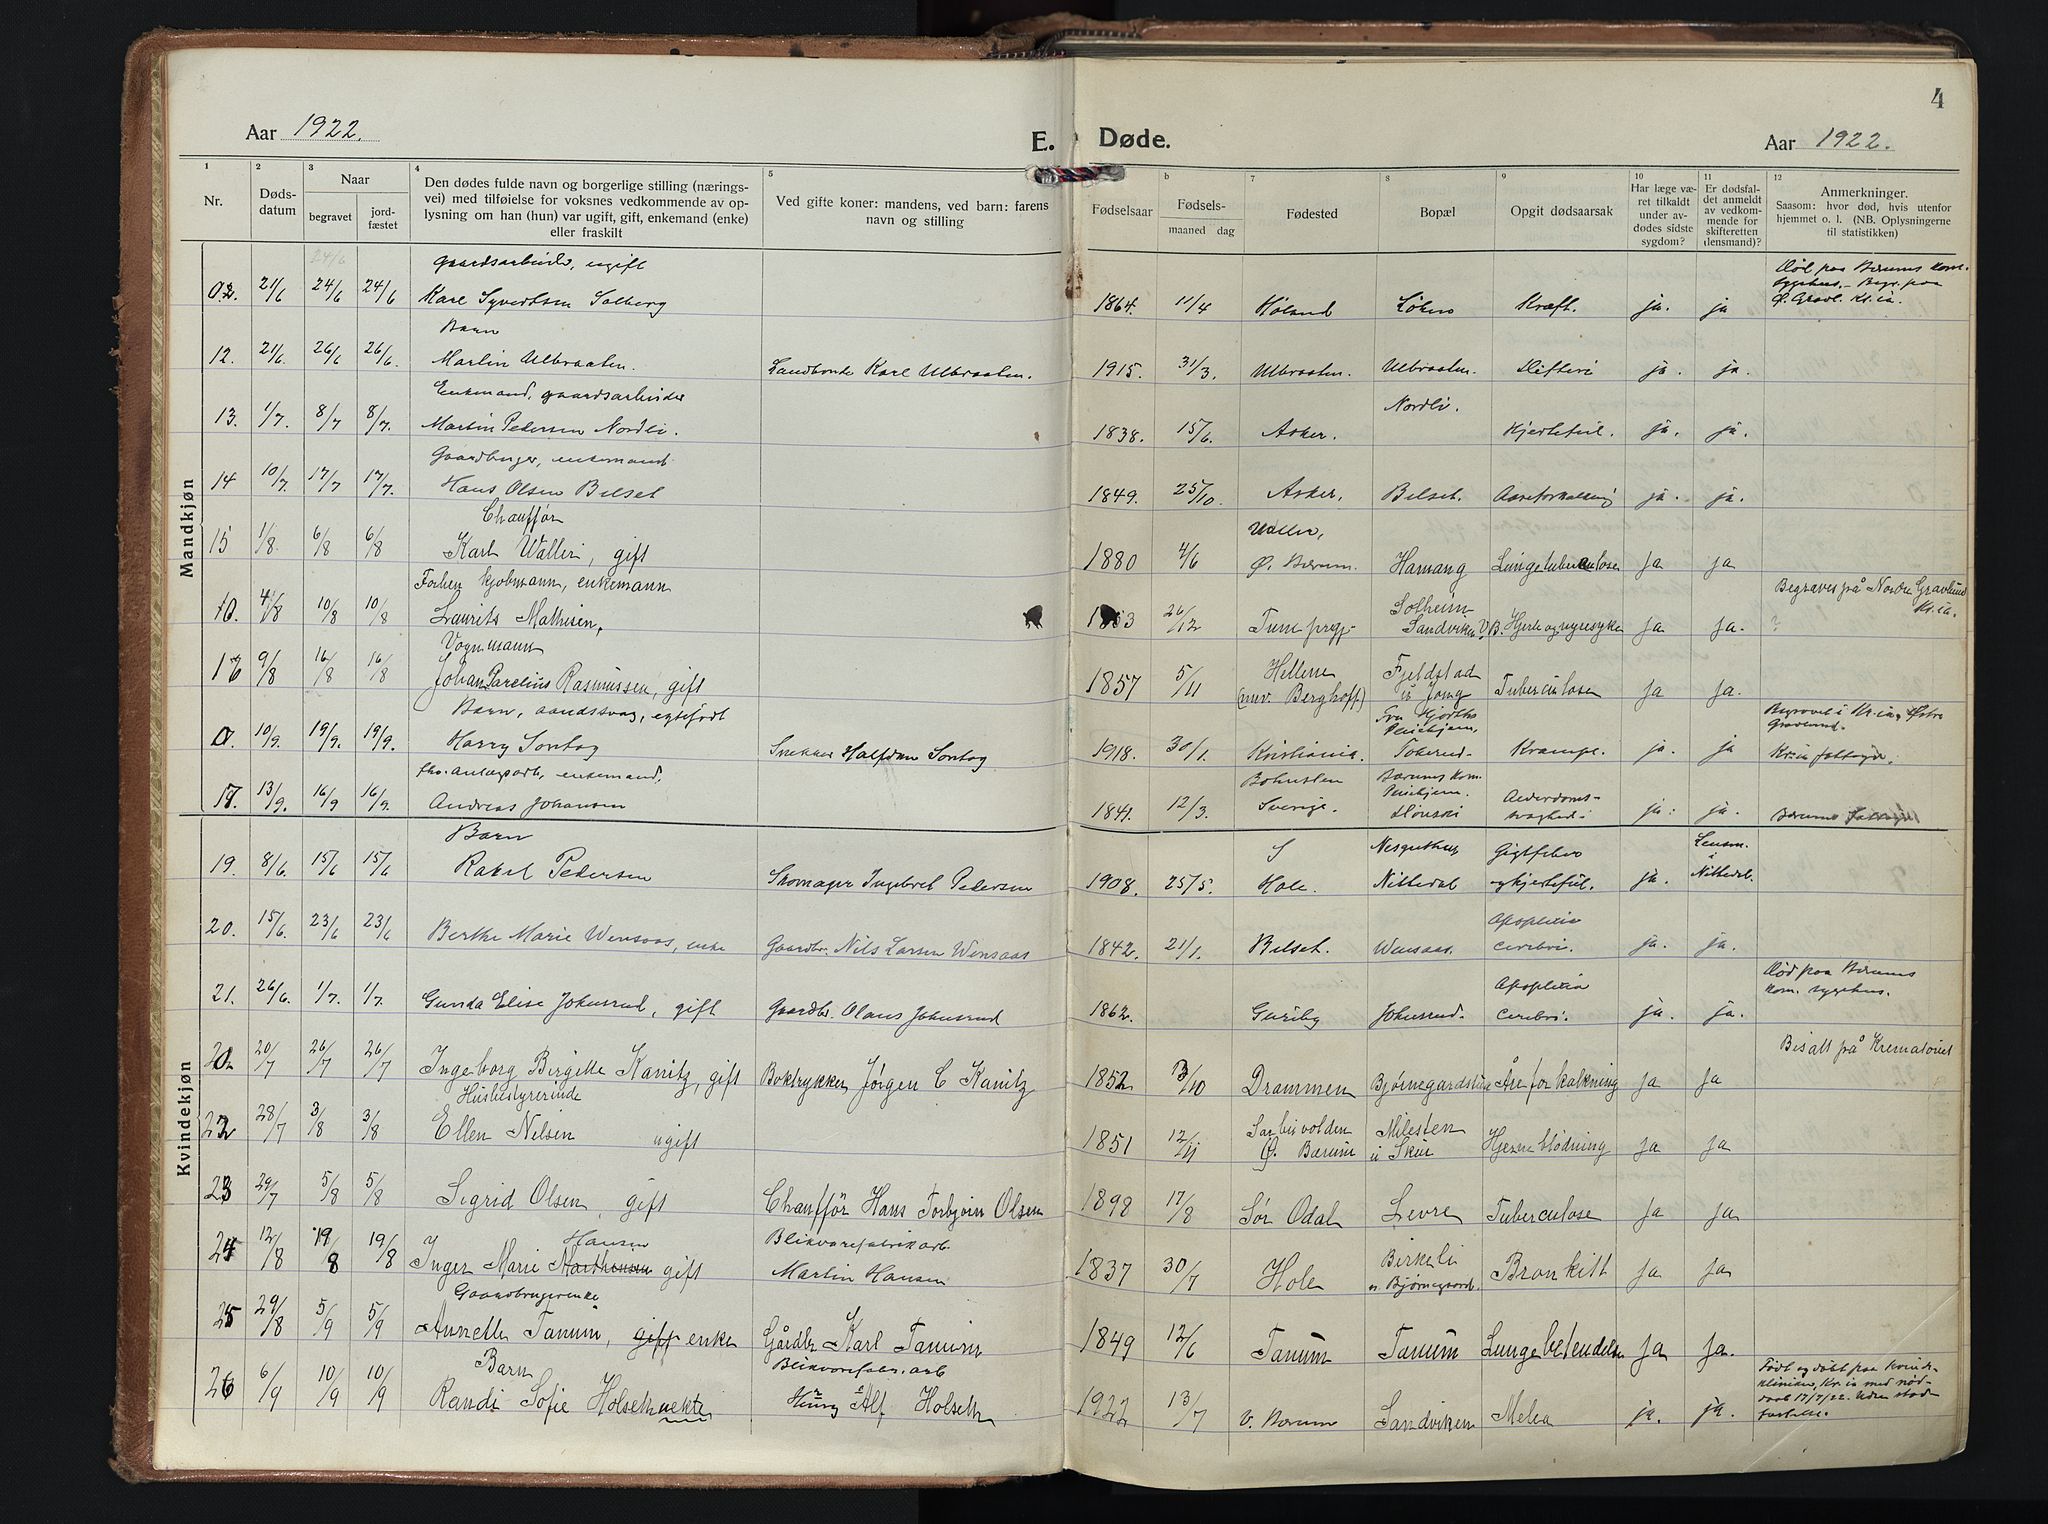 Aar 1922.
E. Døde.
Aar 1922.
4
1 2 3 4 5 b 7 8 9 10 11 12
Nr.
Døds-
datum
Naar
begravet
jord-
fæstet
Den dødes fulde navn og borgerlige stilling (nærings-
vei) med tilføielse for voksnes vedkommende av op-
lysning om han (hun) var ugift, gift, enkemand (enke)
eller fraskilt
Ved gifte koner: mandens, ved barn: farens
navn og stilling
Fødselsaar
Fødsels-
maaned dag
Fødested
Bopæl
Opgit dødsaarsak
Har læge væ-
ret tilkaldt
under av-
dødes sidste
sygdom?
Er dødsfal-
det anmeldt
av vedkom-
mende for
skifteretten
(lensmand)?
Anmerkninger.
Saasom: hvor død, hvis utenfor
hjemmet o. l. (NB. Oplysningerne
til statistikken)
Mandkjøn
24/6
Gaardsarbeider, ugift
0. 21/6 24/6 24/6 Karl Syvertsen Solberg 1864. 11/4 Høland Løken Kræft. ja. ja
Død paa Bærums kom.
sygehus. - Begr. paa
Ø. Gravl. Kr.ia.
Barn
12. 21/6. 26/6 26/6. Martin Ulbraaten. Landbonde Karl Ulbraaten. 1915. 31/3. Ulbraaten. Ulbraaten. Difteri ja. ja.
Enkemand, gaardsarbeider
13. 1/7. 8/7 8/7. Martin Pedersen Nordli. 1838. 15/6. Asker. Nordli. Hjertefeil. ja. ja.
Gaardbruger, enkemand
14 10/7. 17/7 17/7. Hans Olsen Belset 1849. 25/10. Asker. Belset. Aareforkalkning ja. ja.
Chauffør
15 1/8. 6/8 6/8 Karl Waller, gift 1880 4/6 Ø. Bærum. Hamang Lungetuberculose Ja Ja
Forhen kjøbmann, enkemann
10. 4/8 10/8 10/8 Laurits Mathisen, 26/12 Tune prgj. Solheim
Sandviken V.B. Hjerte og nyresyke Ja Ja. ?
Begraves på Nordre Gravlund
Kr.ia.
Vognmann
16 9/8 16/8 16/8 Johan Parelius Rasmussen, gift 1857 5/11 Hellene
(nuv. Berghoff) Fjeldstad
u Jong Tuberculose Ja Ja.
Barn, aandssvag, egtefødt
0. 10/9. 19/9. 19/9. Harry Sontag Snekker Halfdan Sontag 1918. 30/1. Kristiania. Fru Hjorths
Pleiehjem,
Tokerud. Krampe. ja. ja
Begravet i Kr.ia, Østre
Gravlund.
Kr.ia fattigv.
enkemand,
17. 13/9. 16/9 16/9. Andreas Johansen 1841. 12/3. Bohuslen
Sverige. Bærums kom.
Pleiehjem.
Dønski Alderdoms-
svaghed. ja. ja. Bærum
Kvindekjøn
Barn
19. 8/6. 15/6 15/6 Rakel Pedersen Skomager Ingebret Pedersen 1908. 25/5. Hole. Nittedal Gigtfeber
og hjertefeil. ja. Lensm.
i
Nittedal.
20. 15/6. 23/6 23/6 Berthe Marie Wensaas, enke Gaardbr. Nils Larsen Wensaas 1842. 21/1. Belset. Wensaas. Apoplexia
cerebri. ja. ja.
21. 26/6. 1/7. 1/7. Gunda Elise Johnsrud, gift Gaardbr. Olaus Johnsrud 1862. Gueriby Johnsrud. Apoplexia
cerebri. ja. ja.
Død paa Bærums
kom. sygehus.
20 20/7 26/7 26/7 Ingeborg Birgitte Kanitz, gift Boktrykker Jørgen C Kanitz 1852 3/10 Drammen Åreforkalkning ja Ja
Bisatt på Krematoriet
Husbestyrerinde
22 28/7 3/8 3/8 Ellen Nilsen ugift 1851 12/11 Sarbuvolden
Ø. Bærum Milesten
u Skui Hjerneblødning Ja Ja
23 29/7 5/8 5/8 Sigrid Olsen, gift Chauffør Hans Torbjørn Olsen 1898 17/8 Sør Odal Levre Tuberculose Ja Ja
24 12/8 19/8 19/8 Inger Marie Hansen gift Blikvarefabrikarb.
Martin Hansen 1837 30/7 Hole Birkeli
n. Bjørnegaard. Bronkitt Ja Ja
Gaardbrugerenke
25 29/8 5/9 5/9 Annette Tanum, gift enke Gårdbr Karl Tanum 1849 12/6 Tanum Tanum Lungebetendelse Ja Ja.
Barn
26 6/9 10/9 10/9 Randi Sofie Holseth uekte Blikvarefabr. arb
Henry Alf Holseth 1922 13/7 V. Bærum Sandviken Melea ja. ja.
Født og døbt paa Kvinde-
kliniken, Kr.ia med nød-
daab 17/7/22. Uden stad-
fæstelse.